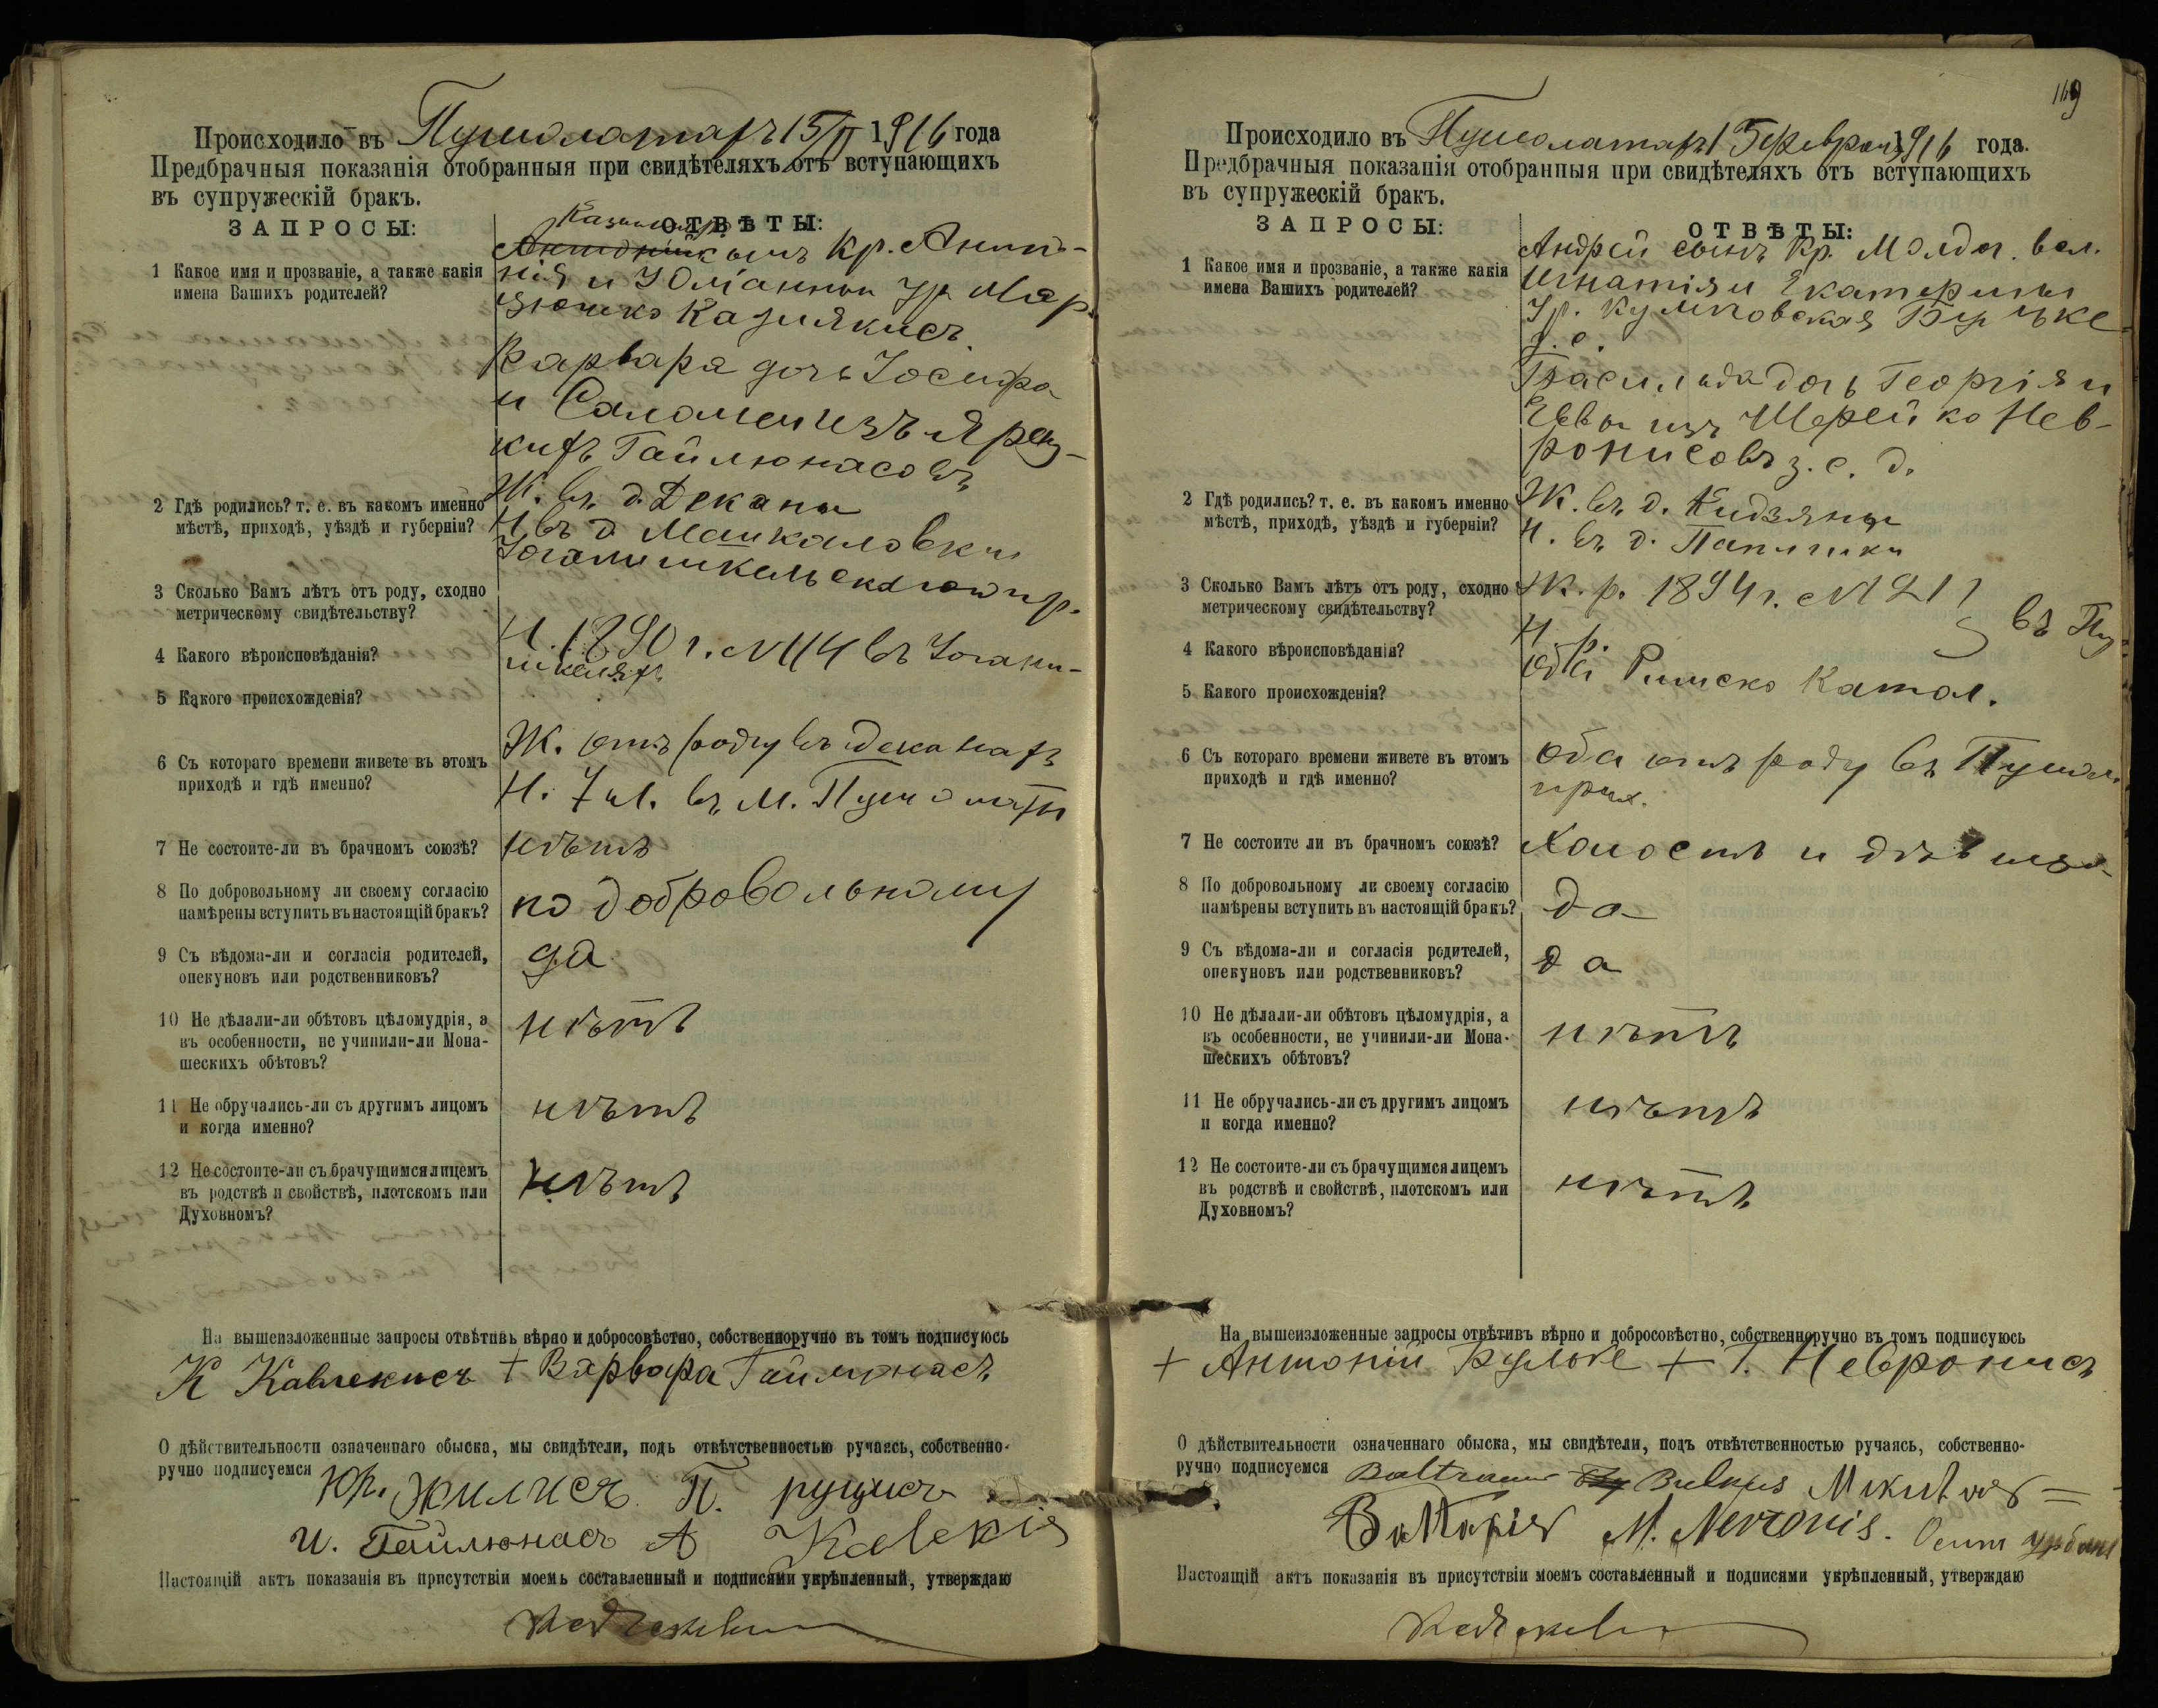 Происходило въ Пумолатахъ 15/II 1916 года
Предбрачныя показанія отобранныя при свидѣтеляхъ отъ вступающихъ
въ супружескій бракъ.
ЗАПРОСЫ:
ОТВѢТЫ:
1 Какое имя и прозваніе, а также какія
имена Вашихъ родителей?
сынъ Кр. Анто-
нія и Юліанны ур. Мар-
Варвара дочь Іосифа
и Саломеи изъ
Гайлюнасовъ
2 Гдѣ родились? т. е. въ какомъ именно
мѣстѣ, приходѣ, уѣздѣ и губерніи?
Ж. въ д. Деканы
Н. въ д.
3 Сколько Вамъ лѣтъ отъ роду, сходно
метрическому свидѣтельству?
Н. 1890 г. N 114 въ Іогани-
шкеляхъ
4 Какого вѣроисповѣданія?
5 Какого происхожденія?
6 Съ котораго времени живете въ этомъ
приходѣ и гдѣ именно?
Ж. отъ роду въ Деканахъ
Н. 7 л. въ м.
7 Не состоите-ли въ брачномъ союзѣ?
нѣтъ
8 По добровольному ли своему согласію
намѣрены вступить въ настоящій бракъ?
по добровольному
9 Съ вѣдома-ли и согласія родителей,
опекуновъ или родственниковъ?
да
10 Не дѣлали-ли обѣтовъ цѣломудрія, а
въ особенности, не учинили-ли Мона-
шескихъ обѣтовъ?
нѣтъ
11 Не обручались-ли съ другимъ лицомъ
и когда именно?
нѣтъ
12 Не состоите-ли съ брачущимся лицемъ
въ родствѣ и свойствѣ, плотскомъ или
Духовномъ?
нѣтъ
На вышеизложенные запросы отвѣтивъ вѣрно и добросовѣстно, собственноручно въ томъ подписуюсь
К Кавлекисъ + Варвара Гайлюнасъ
О дѣйствительности означеннаго обыска, мы свидѣтели, подъ отвѣтственностью ручаясь, собственно-
ручно подписуемся Юр. Жилисъ П.
И. Гайлюнасъ А Kalekis
Настоящій актъ показанія въ присутствіи моемъ составленный и подписями укрѣпленный, утверждаю
169
Происходило въ 15 февраля 1916 года.
Предбрачныя показанія отобранныя при свидѣтеляхъ отъ вступающихъ
въ супружескій бракъ.
ЗАПРОСЫ:
ОТВѢТЫ:
1 Какое имя и прозваніе, а также какія
имена Вашихъ родителей?
Андрей сынъ Кр. вол.
Игнатія и Екатерины
з. с.
дочь Георгія и
Евы изъ Шерейко Нев-
ронисовъ з. с. д.
2 Гдѣ родились? т. е. въ какомъ именно
мѣстѣ, приходѣ, уѣздѣ и губерніи?
Ж. въ д. Кидзяны
Н. въ д.
3 Сколько Вамъ лѣтъ отъ роду, сходно
метрическому свидѣтельству?
Ж. р. 1894 г. N 211
Н. р. въ
4 Какого вѣроисповѣданія?
оба Римско Катол.
5 Какого происхожденія?
6 Съ котораго времени живете въ этомъ
приходѣ и гдѣ именно?
оба отъ роду въ
прих.
7 Не состоите ли въ брачномъ союзѣ?
Холостъ и дѣвица
8 По добровольному ли своему согласію
намѣрены вступить въ настоящій бракъ?
да
9 Съ вѣдома-ли и согласія родителей,
опекуновъ или родственниковъ?
да
10 Не дѣлали-ли обѣтовъ цѣломудрія, а
въ особенности, не учинили-ли Мона-
шескихъ обѣтовъ?
нѣтъ
11 Не обручались-ли съ другимъ лицомъ
и когда именно?
нѣтъ
12 Не состоите-ли съ брачущимся лицемъ
въ родствѣ и свойствѣ, плотскомъ или
Духовномъ?
нѣтъ
На вышеизложенные запросы отвѣтивъ вѣрно и добросовѣстно, собственноручно въ томъ подписуюсь
+ Антоній Бульке + Т. Невронисъ
О дѣйствительности означеннаго обыска, мы свидѣтели, подъ отвѣтственностью ручаясь, собственно-
ручно подписуемся
M. Nevronis. Осипъ
Настоящій актъ показанія въ присутствіи моемъ составленный и подписями укрѣпленный, утверждаю